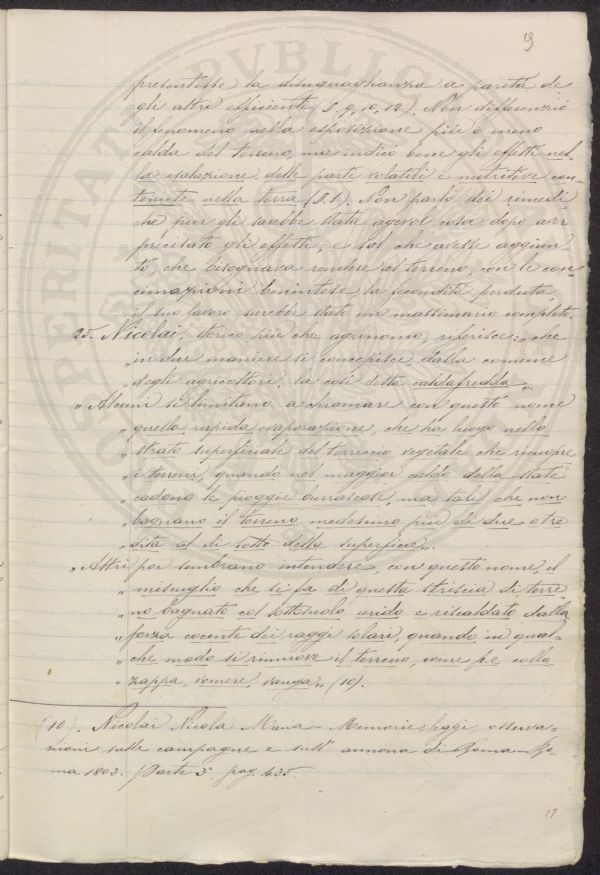 9
presentasse la disuguaglianza a parità de
gli altri efficienti (S. 9, 10, 12). Non differenziò
il fenomeno nella esposizione più o meno
calda del terreno, ma indicò bene gli effetti nel-
la esalazione delle parti volatili e nutritive con-
tenute nella terra (S. 1). Non parlò dei rimedi
che pur gli sarebbe stata agevol cosa dopo aver
precisato gli effetti, e sol che avesse aggiun-
to, che bisognava rendere al terreno, con le con-
cimazioni benintese, la fecondità perduta,
il suo lavoro sarebbe stato un massimario completo.
25. Nicolai, storico più che agronomo, riferisce: „ che
„ in due maniere si concepisce dalla comune
„ degli agricoltori, la così detta caldafredda „.
„ Alcuni si limitano a chiamare con questo nome
„ quella rapida evaporazione, che ha luogo nello
„ strato superficiale del terriccio vegetale che ricuopre
„ i terreni, quando nel maggior caldo della state
„ cadono le pioggie burrascose, ma tali che non
„ bagnano il terreno medesimo più di due o tre
„ dita al di sotto della superficie „.
„ Altri poi sembrano intendere, con questo nome, il
„ miscuglio che si fa di questa striscia di terre-
„ no bagnato col sottosuolo arido e riscaldato dalla
„ forza cocente dei raggi solari, quando in qual-
„ che modo si rimuove il terreno, come p.e. colla
„ zappa, vomere, vanga „ (10).
(10). Nicolai Nicola Maria - Memorie, leggi, osserva-
zioni sulle campagne e sull' annona di Roma - Ro-
ma 1803. Parte 3ª pag. 435.
17
PVBLIC